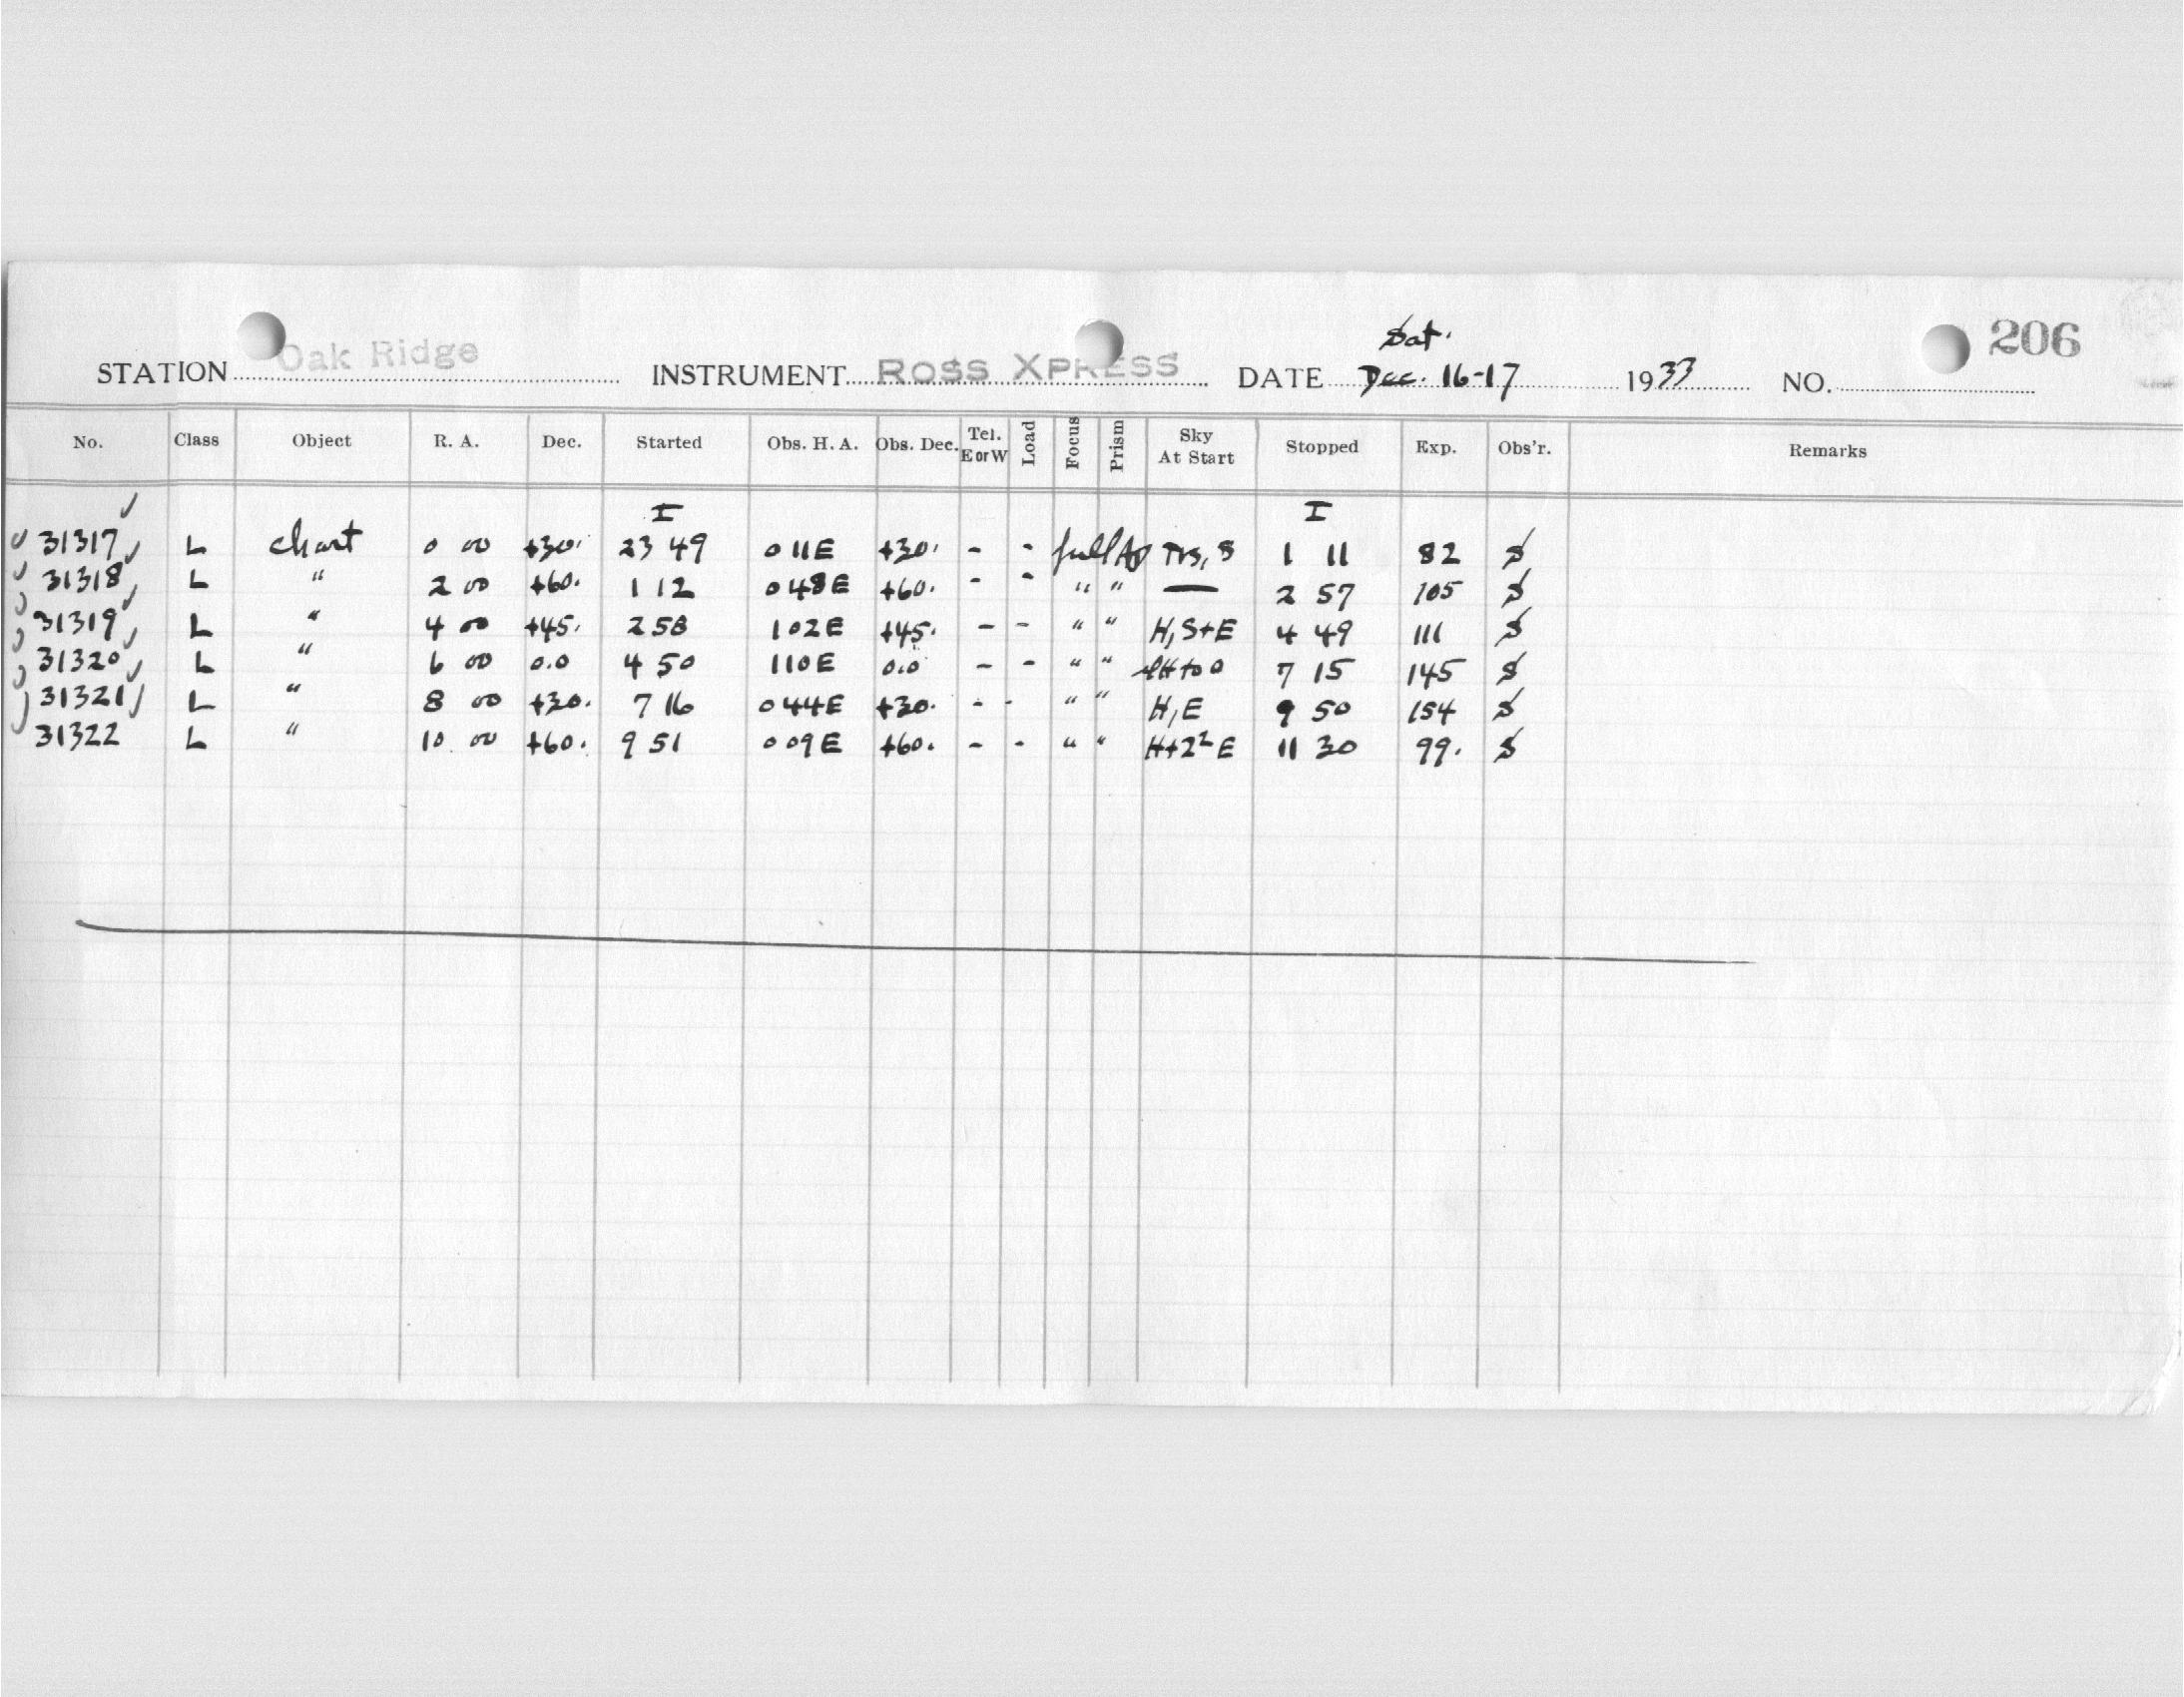 Sat.
206
STATION Oak Ridge INSTRUMENT ROSS XPRESS DATE Dec. 16-17 1933 NO.
No. Class Object R. A. Dec. Started Obs. H. A. Obs. Dec. Tel. E or W Load Focus Prism Sky At Start Stopped Exp. Obs'r. Remarks
I I
31317 L chart 0 00 +30. 23 49 0 11E +30. - - full Ap Trs, S 1 11 82 S
31318 L " 2 00 +60. 1 12 0 48E +60. - - " " — 2 57 105 S
31319 L " 4 00 +45. 2 58 1 02E +45. - - " " H, S+E 4 49 111 S
31320 L " 6 00 0.0 4 50 1 10E 0.0 - - " " to 0 7 15 145 S
31321 L " 8 00 +30. 7 16 0 44E +30. - - " " H, E 9 50 154 S
31322 L " 10 00 +60. 9 51 0 09E +60. - - " " H+2² E 11 30 99. S